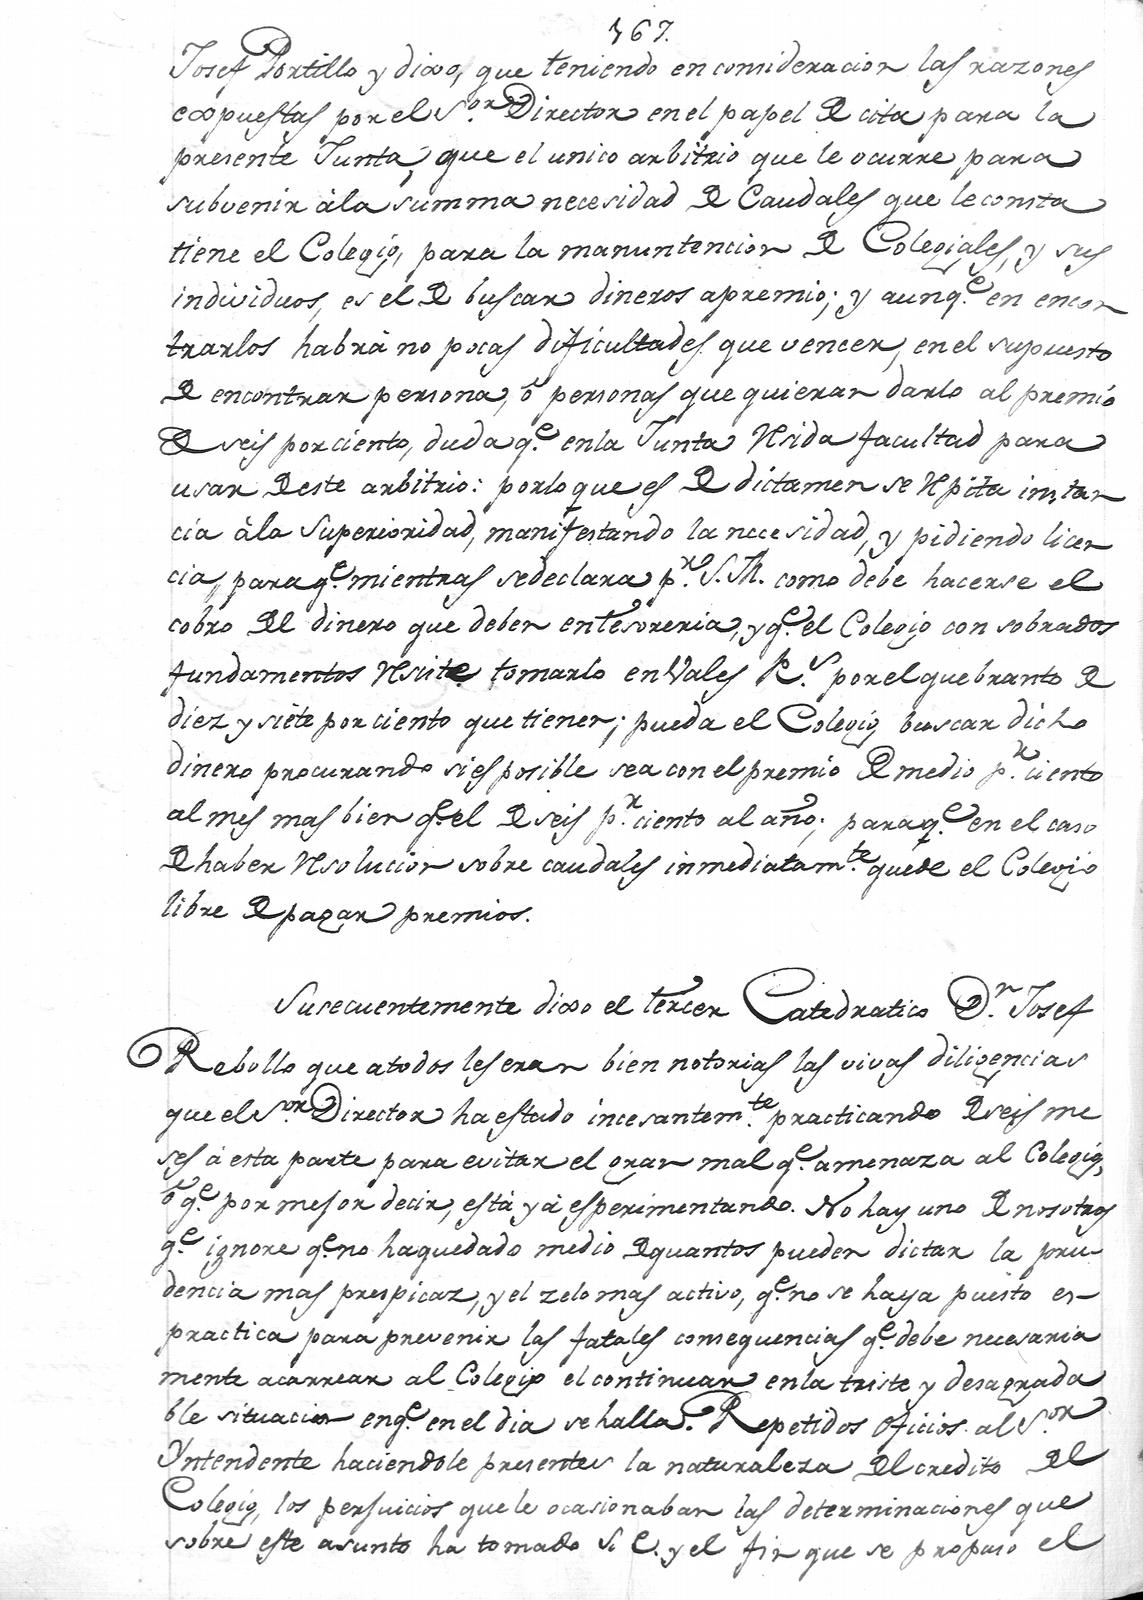 367.
Josef Portillo y dixo, que teniendo en consideracion las razones
expuestas por el S.or Director en el papel de cita para la
presente Junta, que el unico arbitrio que le ocurre para
subvenir àla summa necesidad de Caudales que le consta
tiene el Colegio, para la manuntencion de Colegiales, y sus
individuos, es el de buscar dineros apremio; y aunq.e en encon
trarlos habrà no pocas dificultades que vencer, en el supuesto
de encontrar persona, ô personas que quieran darlo al premio
de seis por ciento, duda q.e enla Junta resida facultad para
usar de este arbitrio: porlo que es de dictamen se repita instan
cia àla Superioridad, manifestando la necesidad, y pidiendo licen
cia, para q.e mientras sedeclara p.r S.M. como debe hacerse el
cobro del dinero que deben entesoreria, y q.e el Colegio con sobrados
fundamentos resiste tomarlo en Vales R.s por el quebranto de
diez y siete por ciento que tienen; pueda el Colegio buscar dicho
dinero procurando si es posible sea con el premio de medio p.r ciento
al mes mas bien q.e el de seis p.r ciento al año; para q.e en el caso
de haber resolucion sobre caudales inmediatam.te quede el Colegio
libre de pagar premios.
Susecuentemente dixo el tercer Catedratico D.n Josef
Rebollo que atodos les eran bien notorias las vivas diligencias
que el S.or Director ha estado incesantem.te practicando de seis me
ses à esta parte para evitar el gran mal q.e amenaza al Colegio,
ô q.e por mejor decir, està yà esperimentando. No hay uno de nosotros
q.e ignore q.e no haquedado medio de quantos pueden dictar la pru
dencia mas prespicaz, y el zelo mas activo, q.e no se haya puesto en
practica para prevenir las fatales consequencias q.e debe necesaria
mente acarrear al Colegio el continuar enla triste y desagrada
ble situacion enq.e en el dia se halla. Repetidos oficios al S.or
Yntendente haciendole presentes la naturaleza del credito del
Colegio, los perjuicios que le ocasionaban las determinaciones que
sobre este asunto ha tomado S. E. y el fin que se propuso el